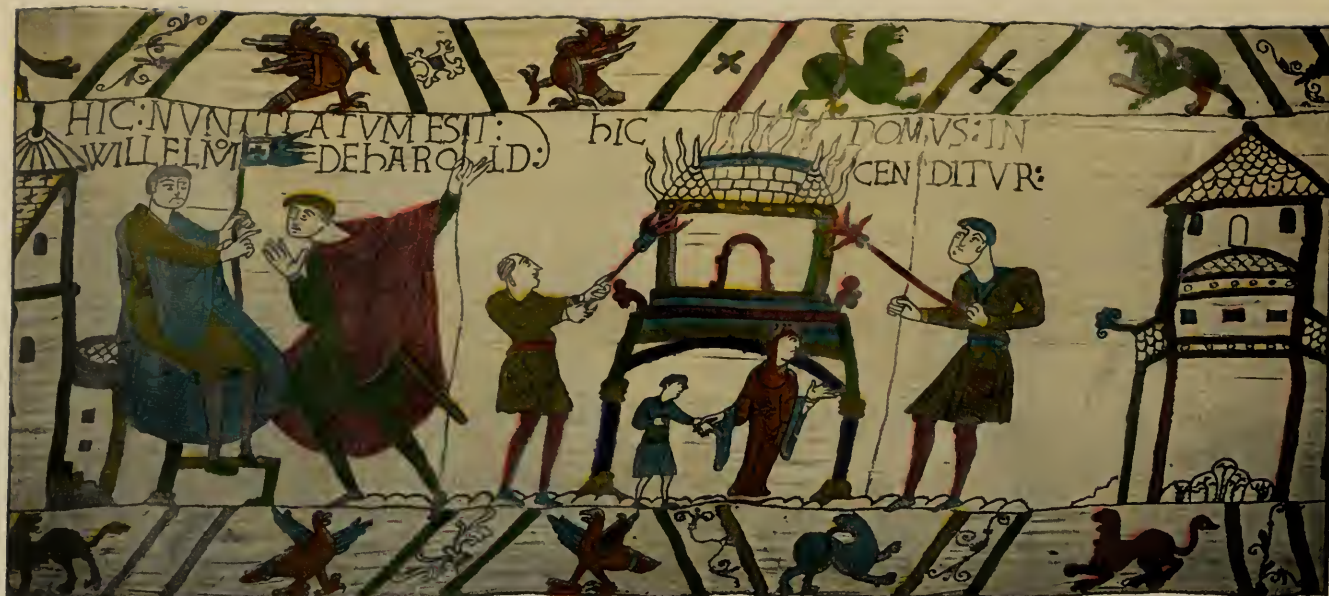 HIC: NVNTIATVM EST:
WILLELMO DE hAROLD:
hIC DOMVS: IN
CENDITVR: